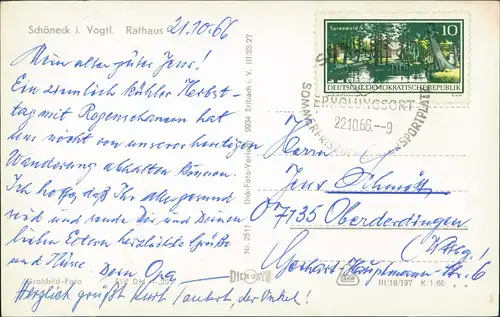 Schöneck i. Vogtl. Rathaus
21.10.66
Mein alter guter Jens!
Ein ziemlich kühler Herbst-
tag mit Regenschauern hat
uns nicht von unserer heutigen
Wanderung abhalten können.
Ich hoffe, daß Ihr alle gesund
seid und sende Dir und Deinen
lieben Eltern herzliche Grüße
und Küsse. Dein Opa
Herzlich grüßt Kurt Taubert, der Onkel!
Grohbild-Foto
Dick-Foto-Verlag 9934 Erlbach i. V. III 23 27
Nr. 2511
DICK FOTO
Spreewald
10
DEUTSCHE DEMOKRATISCHE REPUBLIK
ERHOLUNGSORT
22.10.66.--9
SOMMERFRISCHE
SPORTPLATZ
Herrn
Jens Schmidt
07135 Oberderdingen
Gerhart-Hauptmann-Str. 6
III/18/197 K 1/66